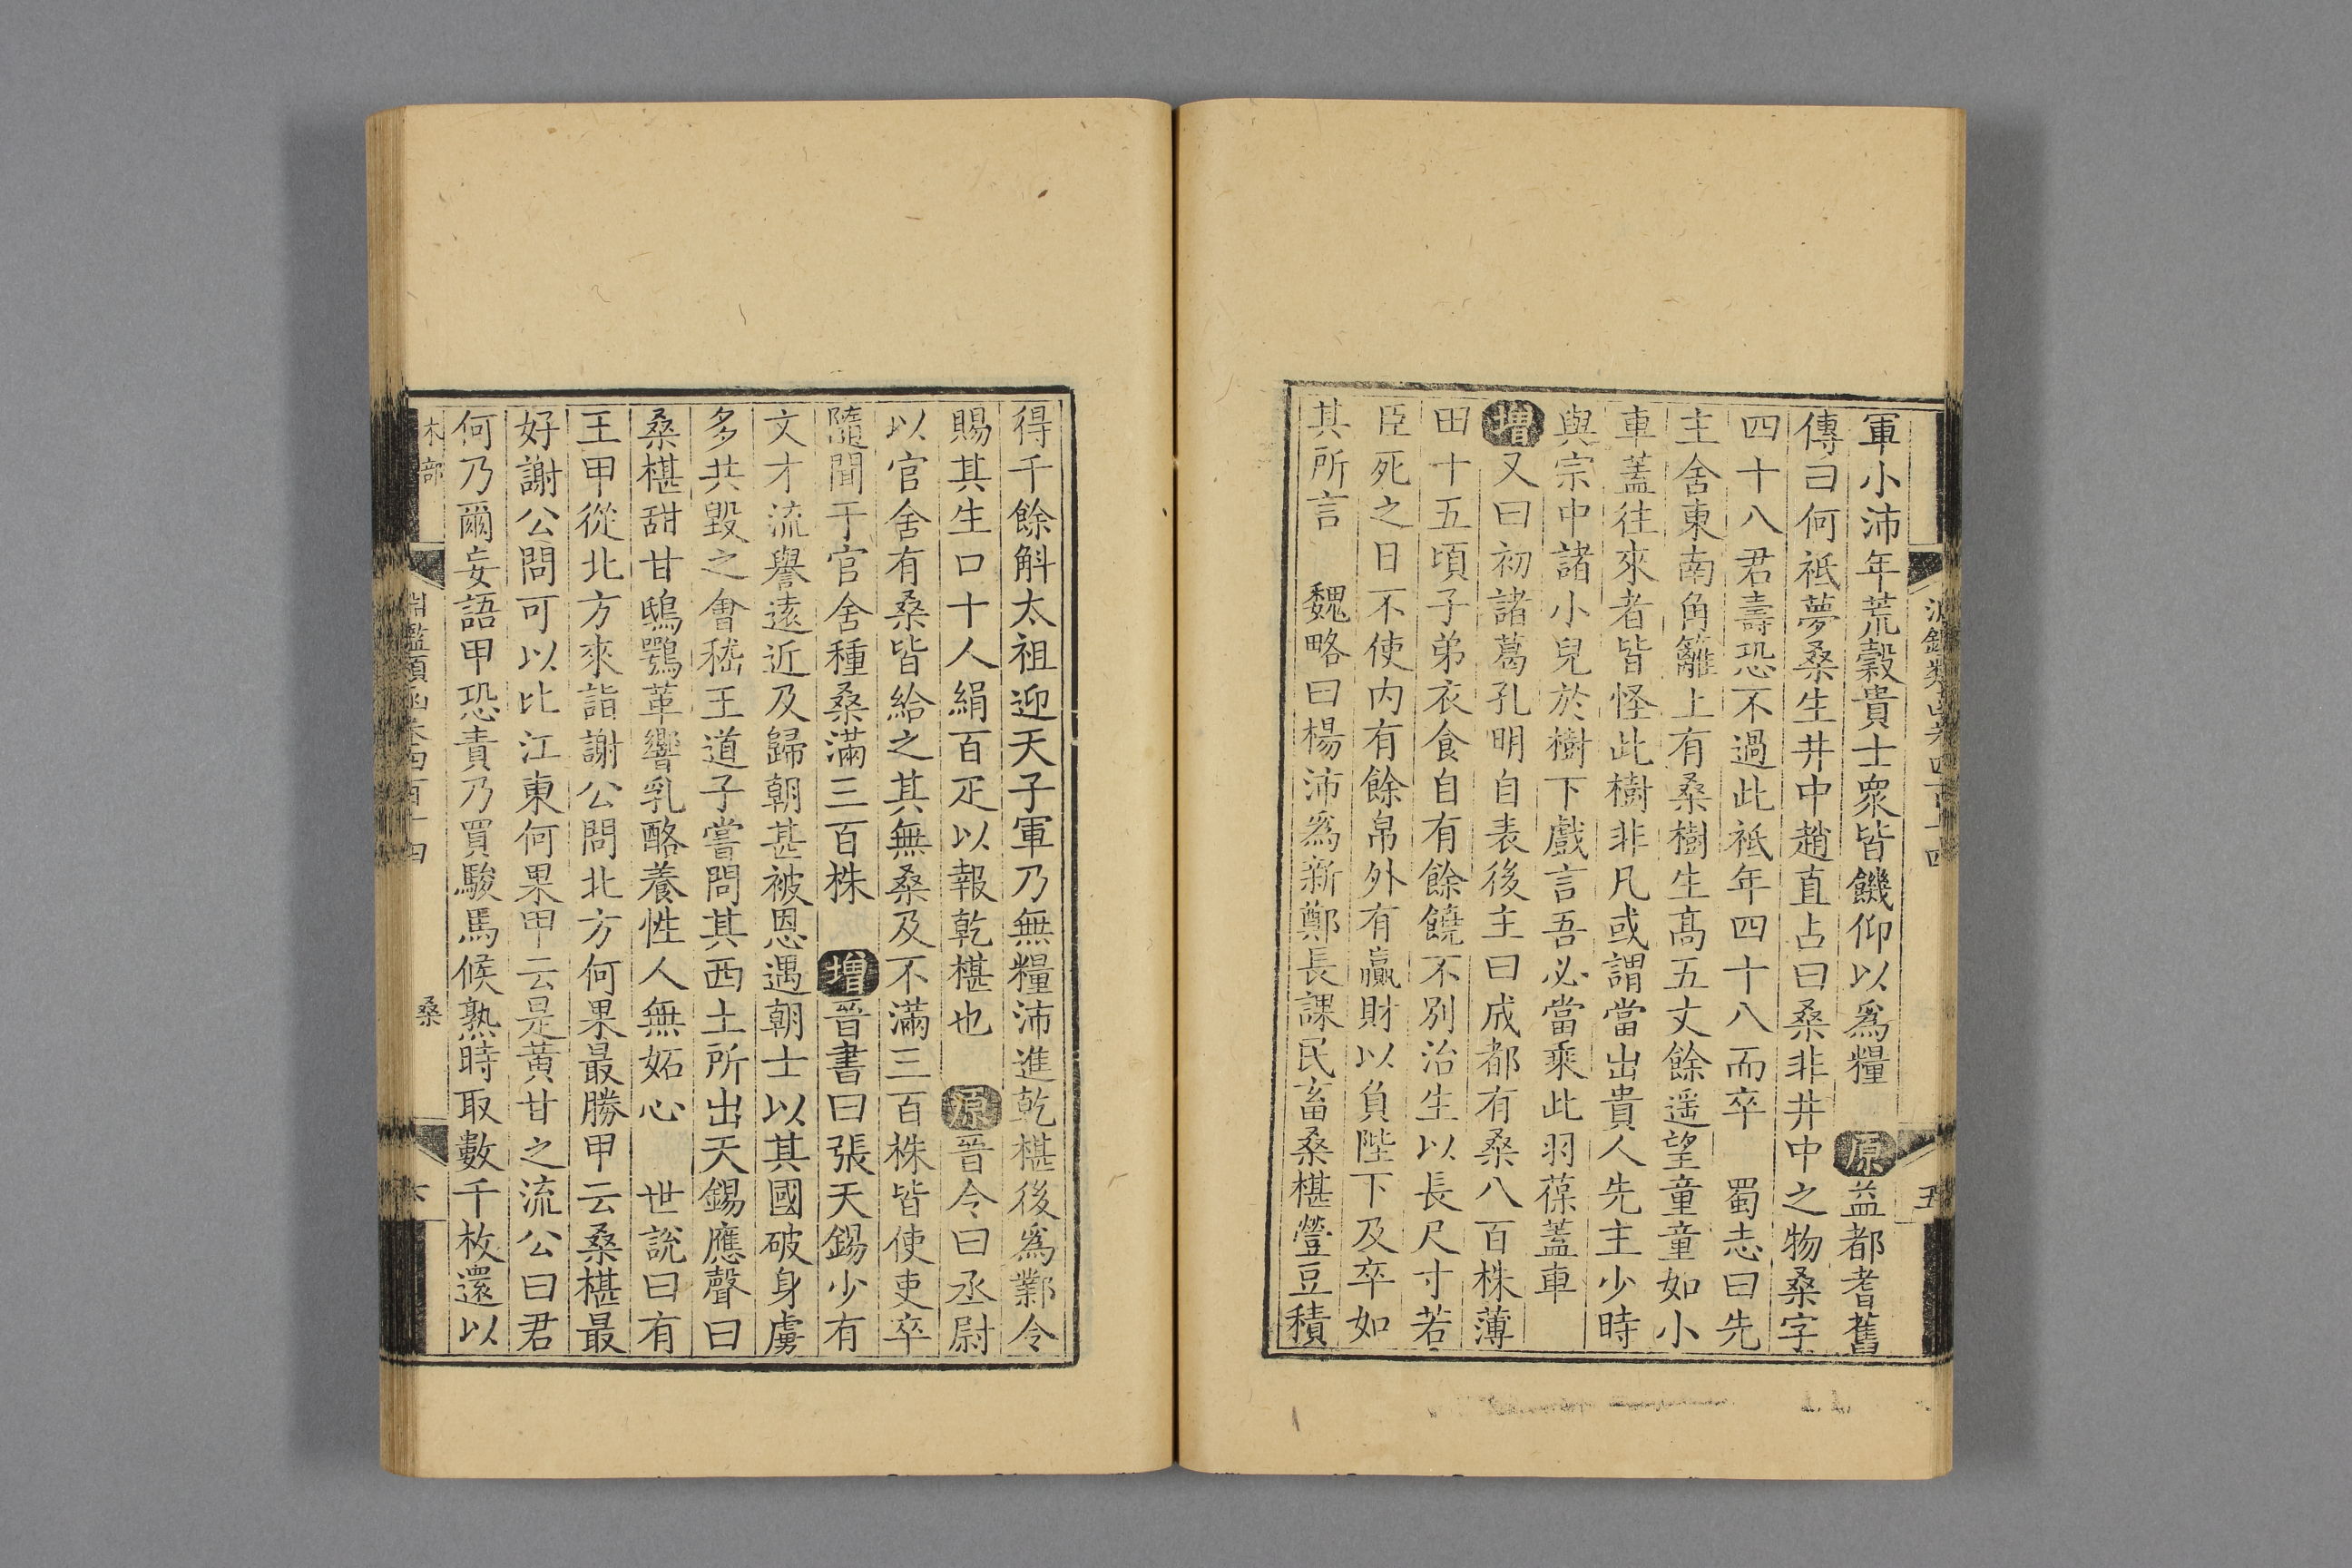 軍小沛年荒穀貴士衆皆饑仰以爲糧　原益都耆舊
傳曰何祗夢桑生井中趙直占曰桑非井中之物桑字
四十八君壽恐不過此祗年四十八而卒　蜀志曰先
主舍東南角籬上有桑樹生髙五丈餘遥望童童如小
車蓋往來者皆怪此樹非凡或謂當出貴人先主少時
與宗中諸小兒於樹下戲言吾必當乘此羽葆蓋車
增又曰初諸葛孔明自表後主曰成都有桑八百株薄
田十五頃子弟衣食自有餘饒不別治生以長尺寸若
臣死之日不使内有餘帛外有贏財以負陛下及卒如
其所言　魏略曰楊沛爲新鄭長課民畜桑椹䝁豆積
得千餘斛太祖迎天子軍乃無糧沛進乾椹後爲鄴令
賜其生口十人絹百疋以報乾椹也　原晉令曰丞尉
以官舍有桑皆給之其無桑及不滿三百株皆使吏卒
隨閒于官舍種桑滿三百株　增晉書曰張天錫少有
文才流譽遠近及歸朝甚被恩遇朝士以其國破身虜
多共毀之會稽王道子嘗問其西土所出天錫應聲曰
桑椹甜甘鴟鴞革響乳酪養性人無妬心　世説曰有
王甲從北方來詣謝公問北方何果最勝甲云桑椹最
好謝公問可以比江東何果甲云是黃甘之流公曰君
何乃爾妄語甲恐責乃買駿馬候熟時取數千枚還以
木部
淵鑑類函卷四百十四
桑
六